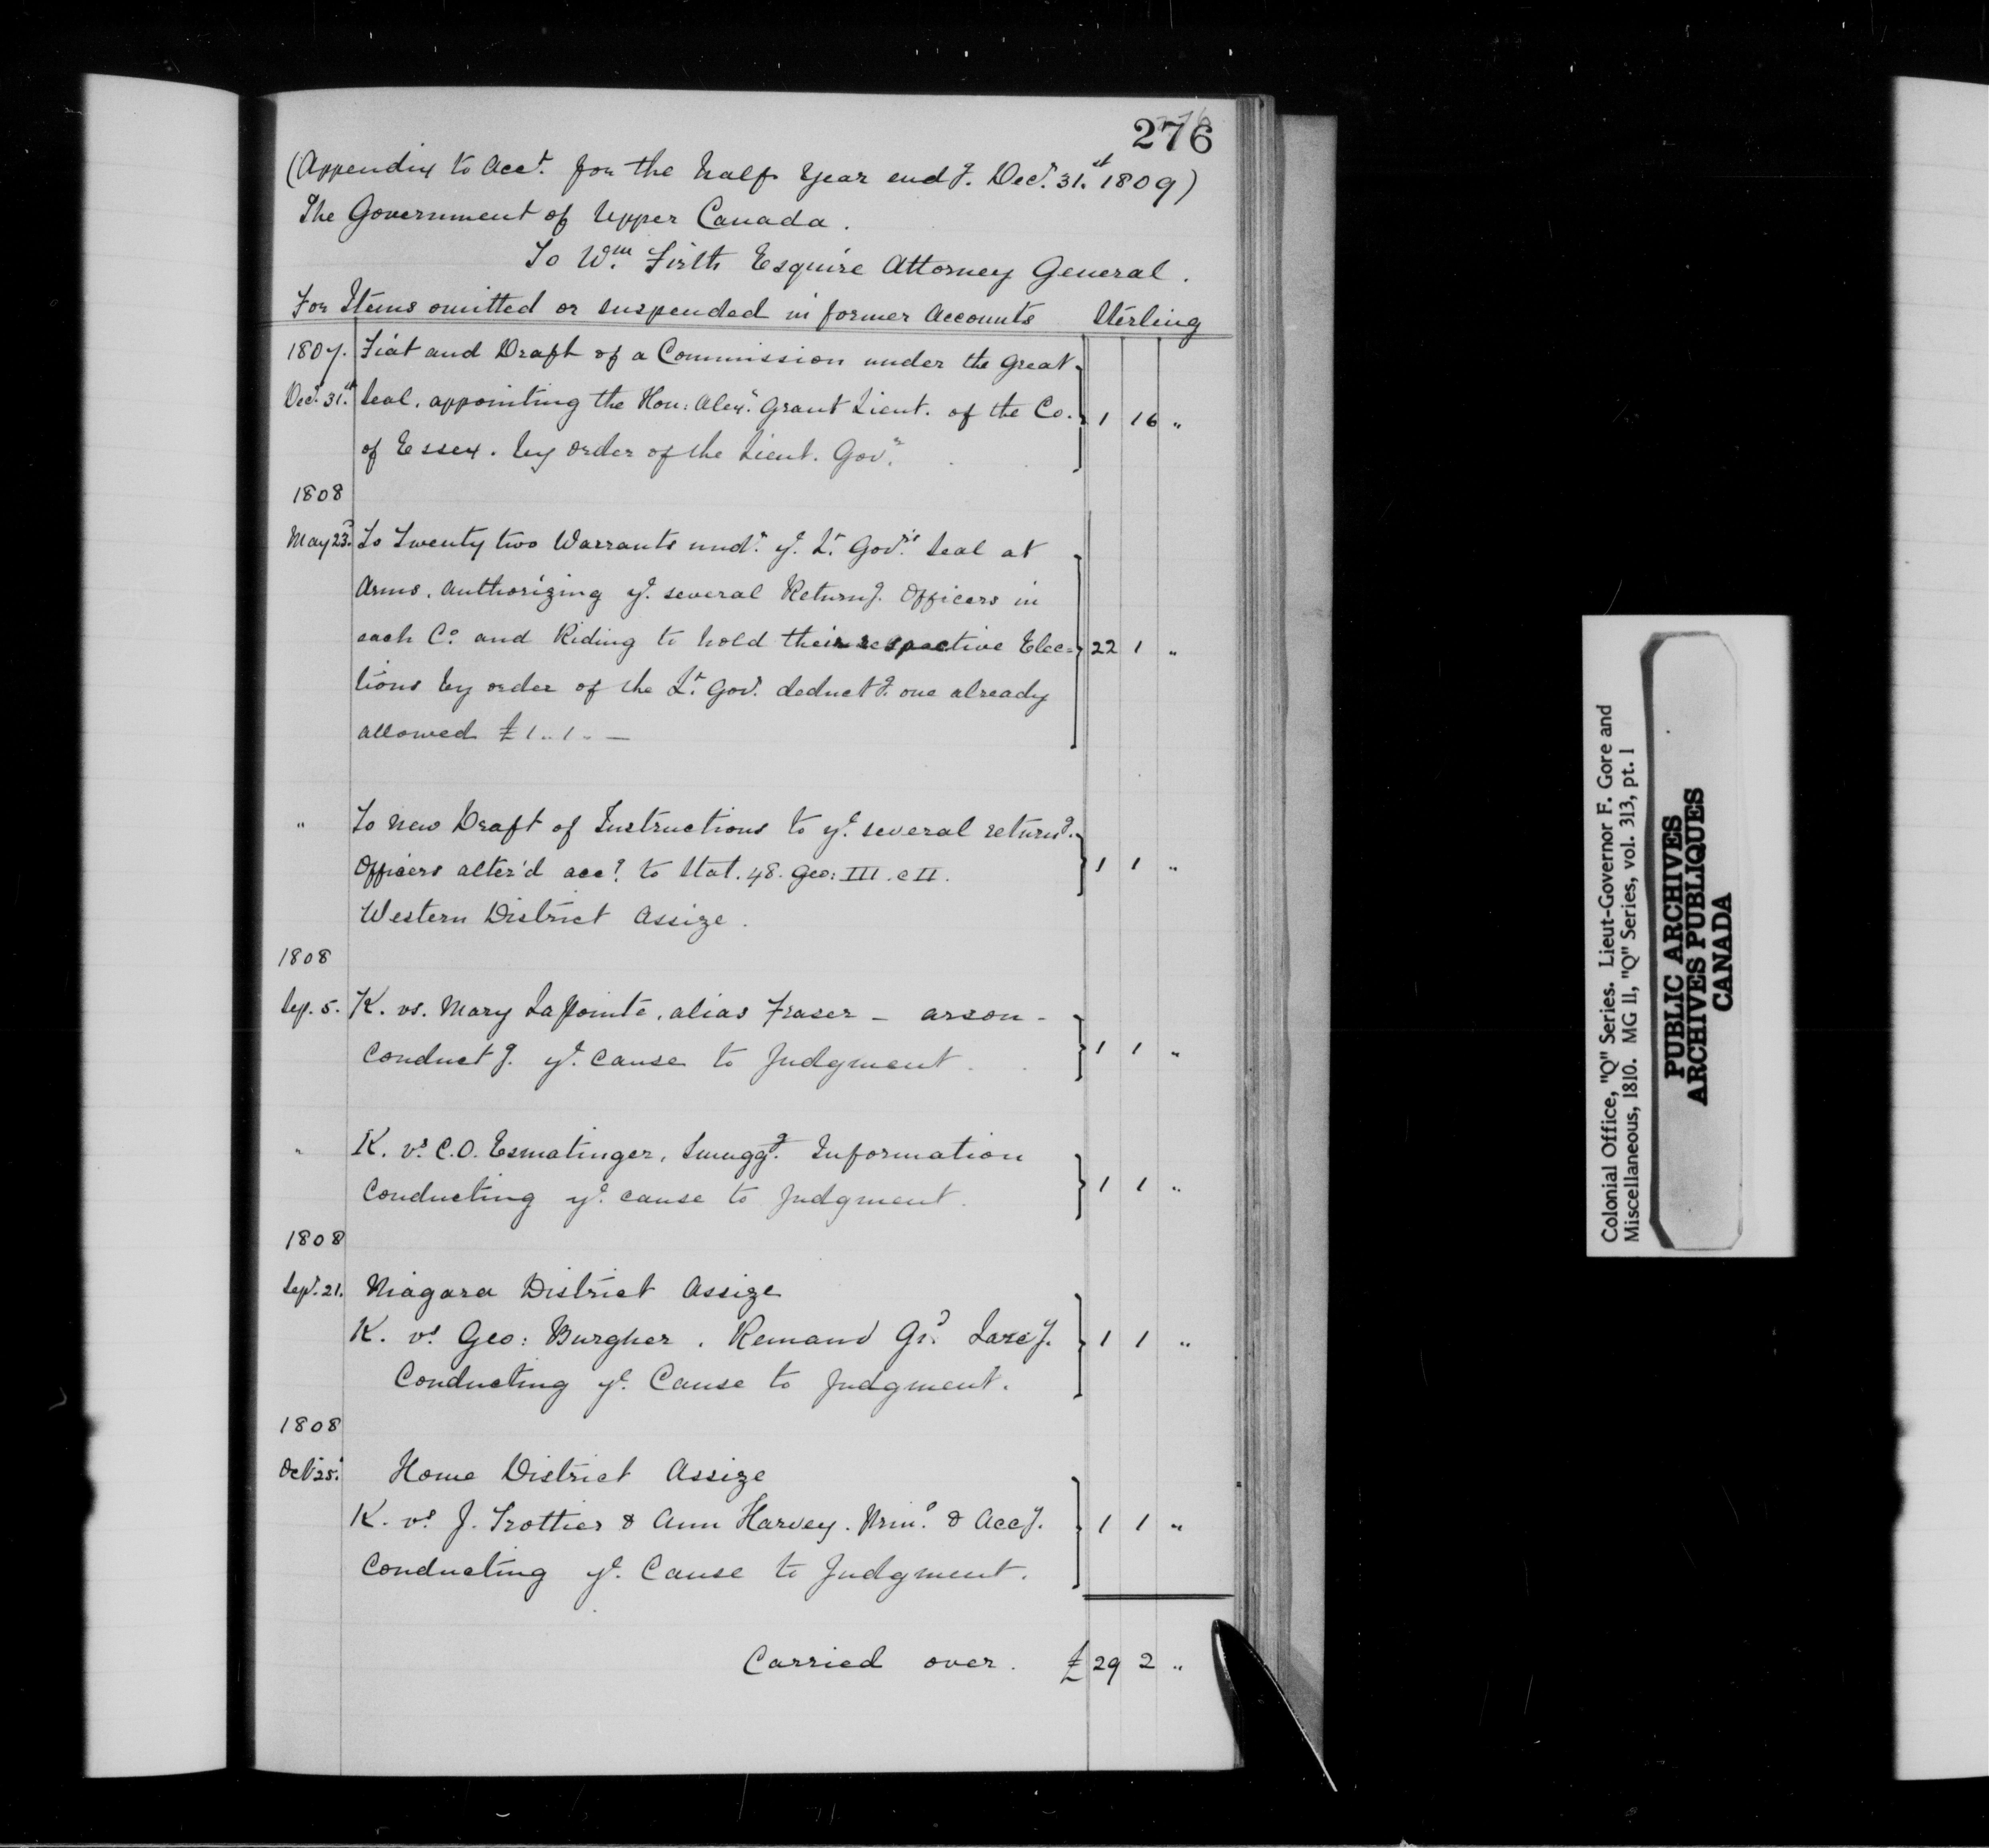 276
(Appendix to Acct. for the half Year endg. Decr. 31st 1809)
The Government of Upper Canada.
To Wm. Firth Esquire Attorney General.
For Items omitted or suspended in former Accounts Sterling
1807. Fiat and Draft of a Commission under the Great
Decr. 31st. Seal, appointing the Hon: Alexr. Grant Lieut. of the Co. 1 16 "
of Essex. by order of the Lieut. Govr.
1808
May 23d. To Twenty two Warrants undr. ye. Lt. Govr's Seal at
Arms, authorizing ye. several Returng. Officers in
each Co. and Riding to hold their respective Elec= 22 1 "
tions by order of the Lt. Govr. deductg. one already
allowed £1..1..—
" To new Draft of Instructions to ye. several returng.
Officers alter'd accg. to Stat. 48. Geo: III. c II. 1 1 "
Western District Assize.
1808
Sep. 5. K. vs. Mary LaPointe, alias Fraser — arson -
Conductg. ye. Cause to Judgment. 1 1 "
" K. vs. C.O. Ermatinger, Smuggg. Information
Conducting ye. cause to Judgment. 1 1 "
1808
Sepr. 21. Niagara District Assize
K. vs. Geo: Burgher. Remand Grd. Larcy. 1 1 "
Conducting ye. Cause to Judgment.
1808
Octr 25. Home District Assize
K. vs. J. Trottier & Ann Harvey. Prinl. & Accy. 1 1 "
Conducting ye. Cause to Judgment.
Carried over. £ 29 2 "
Colonial Office, "Q" Series. Lieut-Governor F. Gore and
Miscellaneous, 1810. MG 11, "Q" Series, vol. 313, pt. 1
PUBLIC ARCHIVES
ARCHIVES PUBLIQUES
CANADA